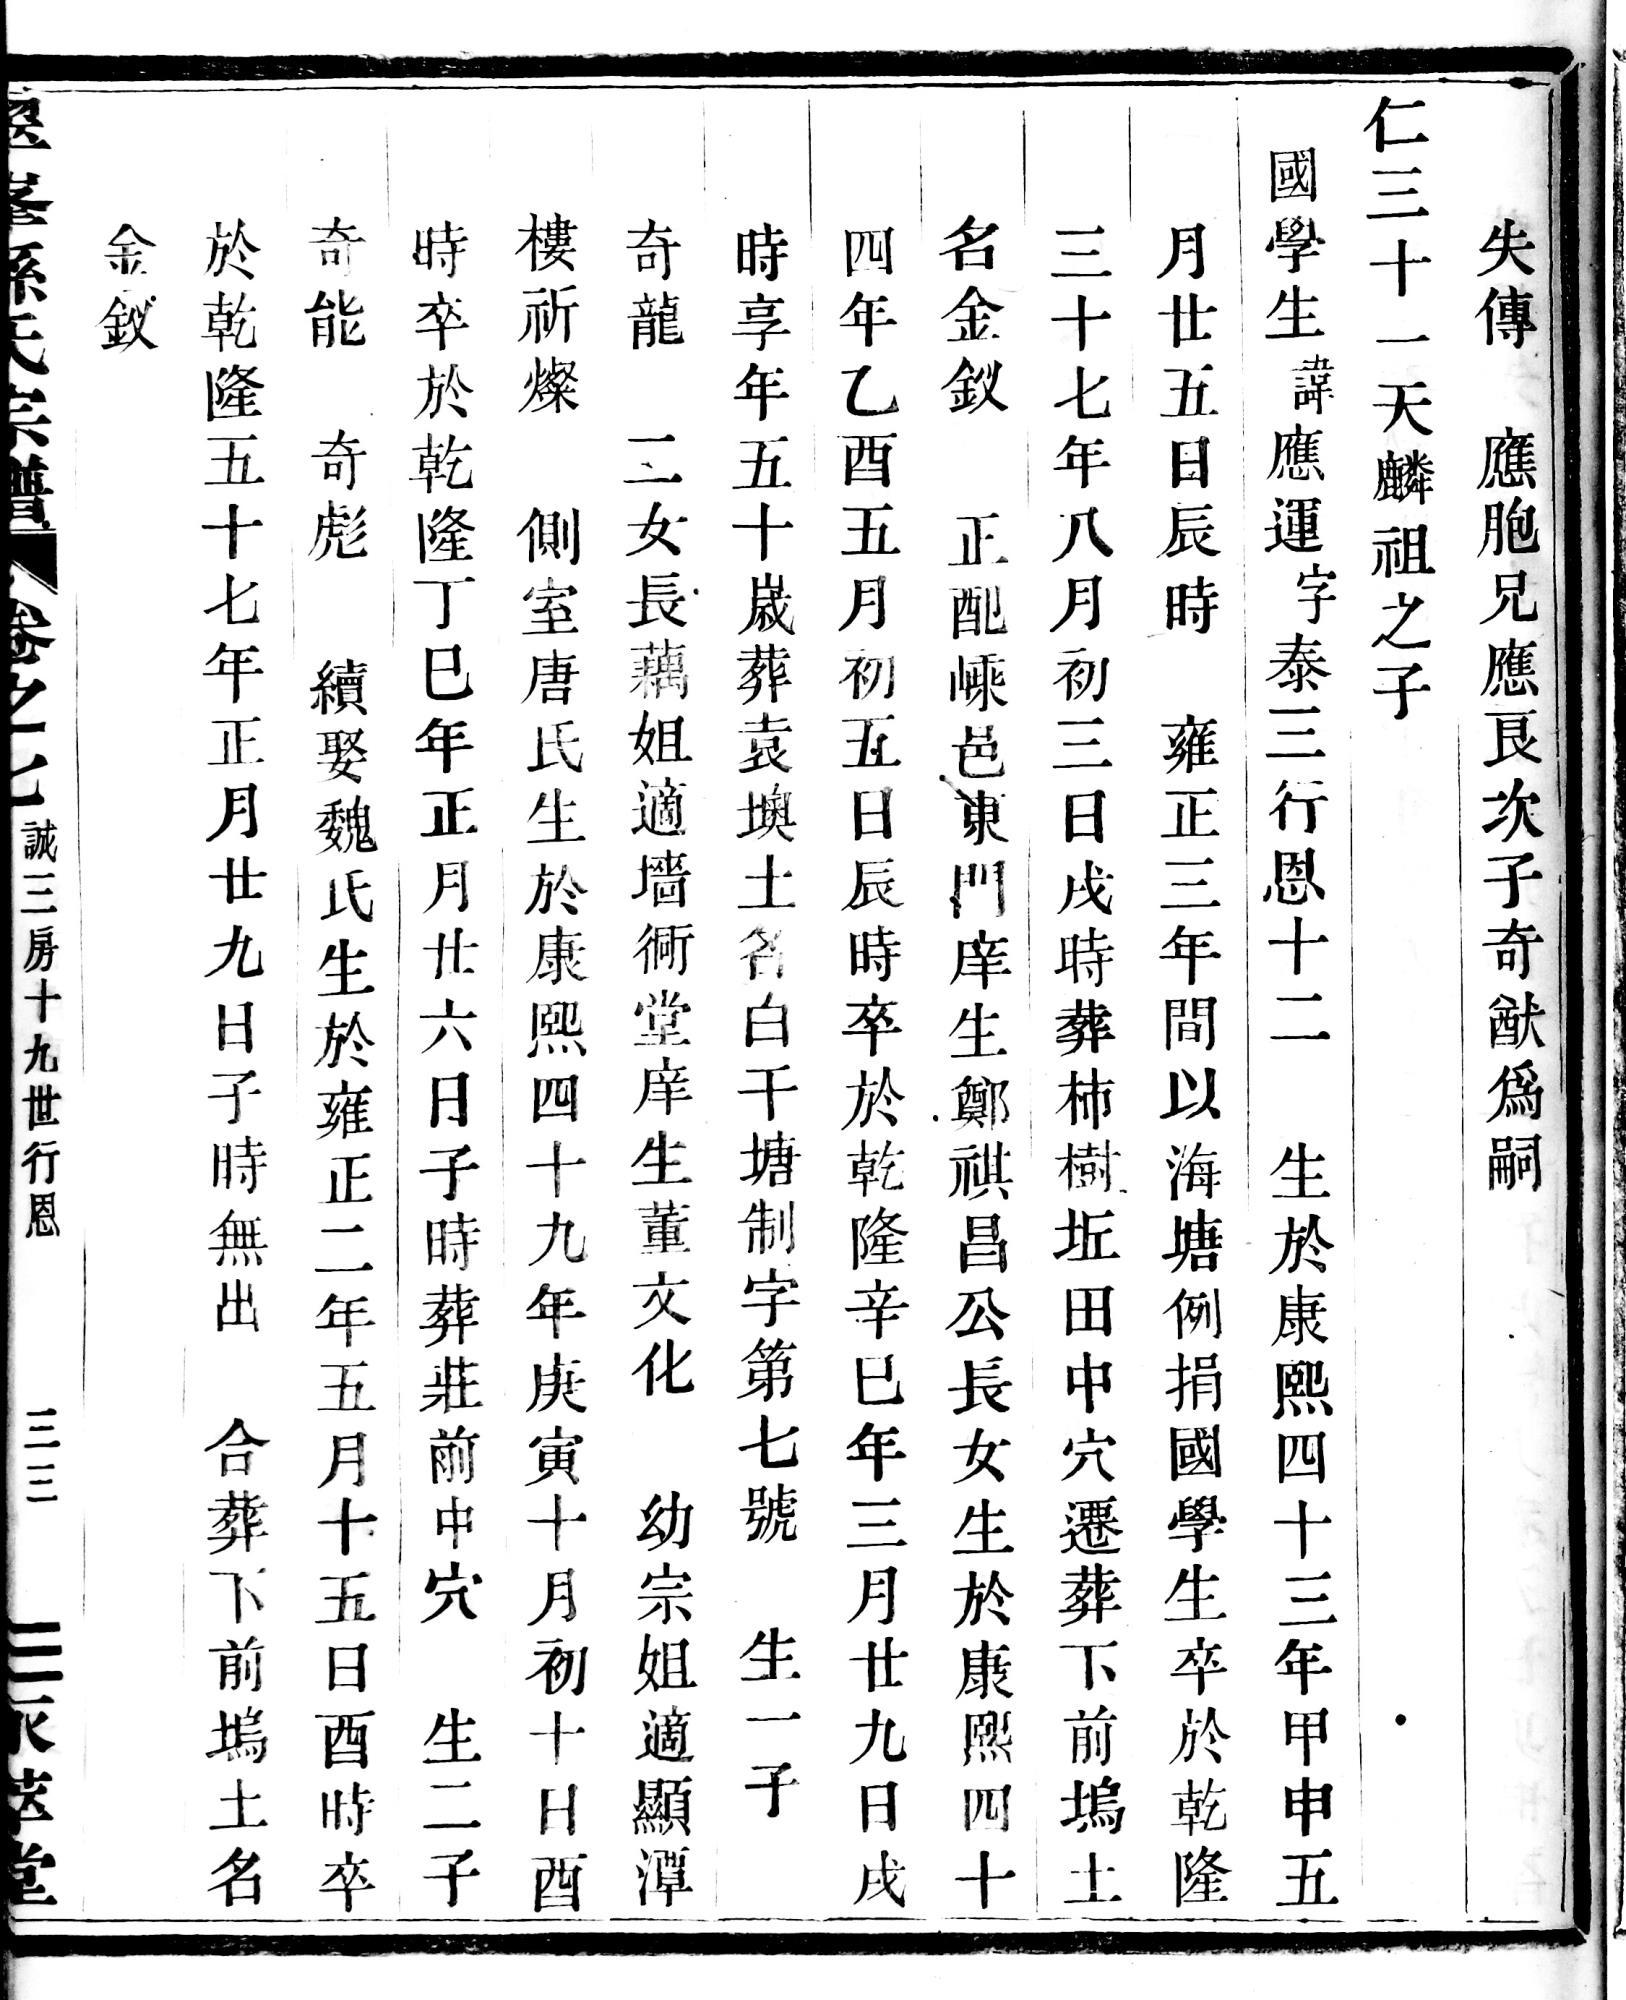 失傳　應胞兄應良次子奇猷爲嗣
仁三十一天麟祖之子
國學生諱應運字泰三行恩十二　生於康熙四十三年甲申五
月廿五日辰時　雍正三年間以海塘例捐國學生卒於乾隆
三十七年八月初三日戌時葬柿樹坵田中穴遷葬下前塢土
名金釵　正配嵊邑東門庠生鄭祺昌公長女生於康熙四十
四年乙酉五月初五日辰時卒於乾隆辛巳年三月廿九日戌
時享年五十歲葬袁墺土名白干塘制字第七號　生一子
奇龍　二女長藕姐適墻衕堂庠生董文化　幼宗姐適顯潭
樓祈燦　側室唐氏生於康熙四十九年庚寅十月初十日酉
時卒於乾隆丁巳年正月廿六日子時葬莊前中穴　生二子
奇能　奇彪　續娶魏氏生於雍正二年五月十五日酉時卒
於乾隆五十七年正月廿九日子時無出　合葬下前塢土名
金釵
峯孫氏宗譜　卷之七　誠三房十九世行恩　三三　萃堂